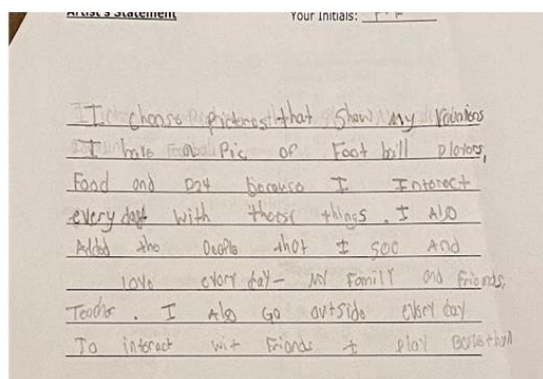 Artist's Statement Your Initials:
I choose pictures that Show My
I have a Pic of Foot ball players,
Food and because I Interact
every day with those things. I Also
Added the People that I see And
love every day- My Family and friends,
Teachr. I Also Go outside every day
To interact wit Friends + play